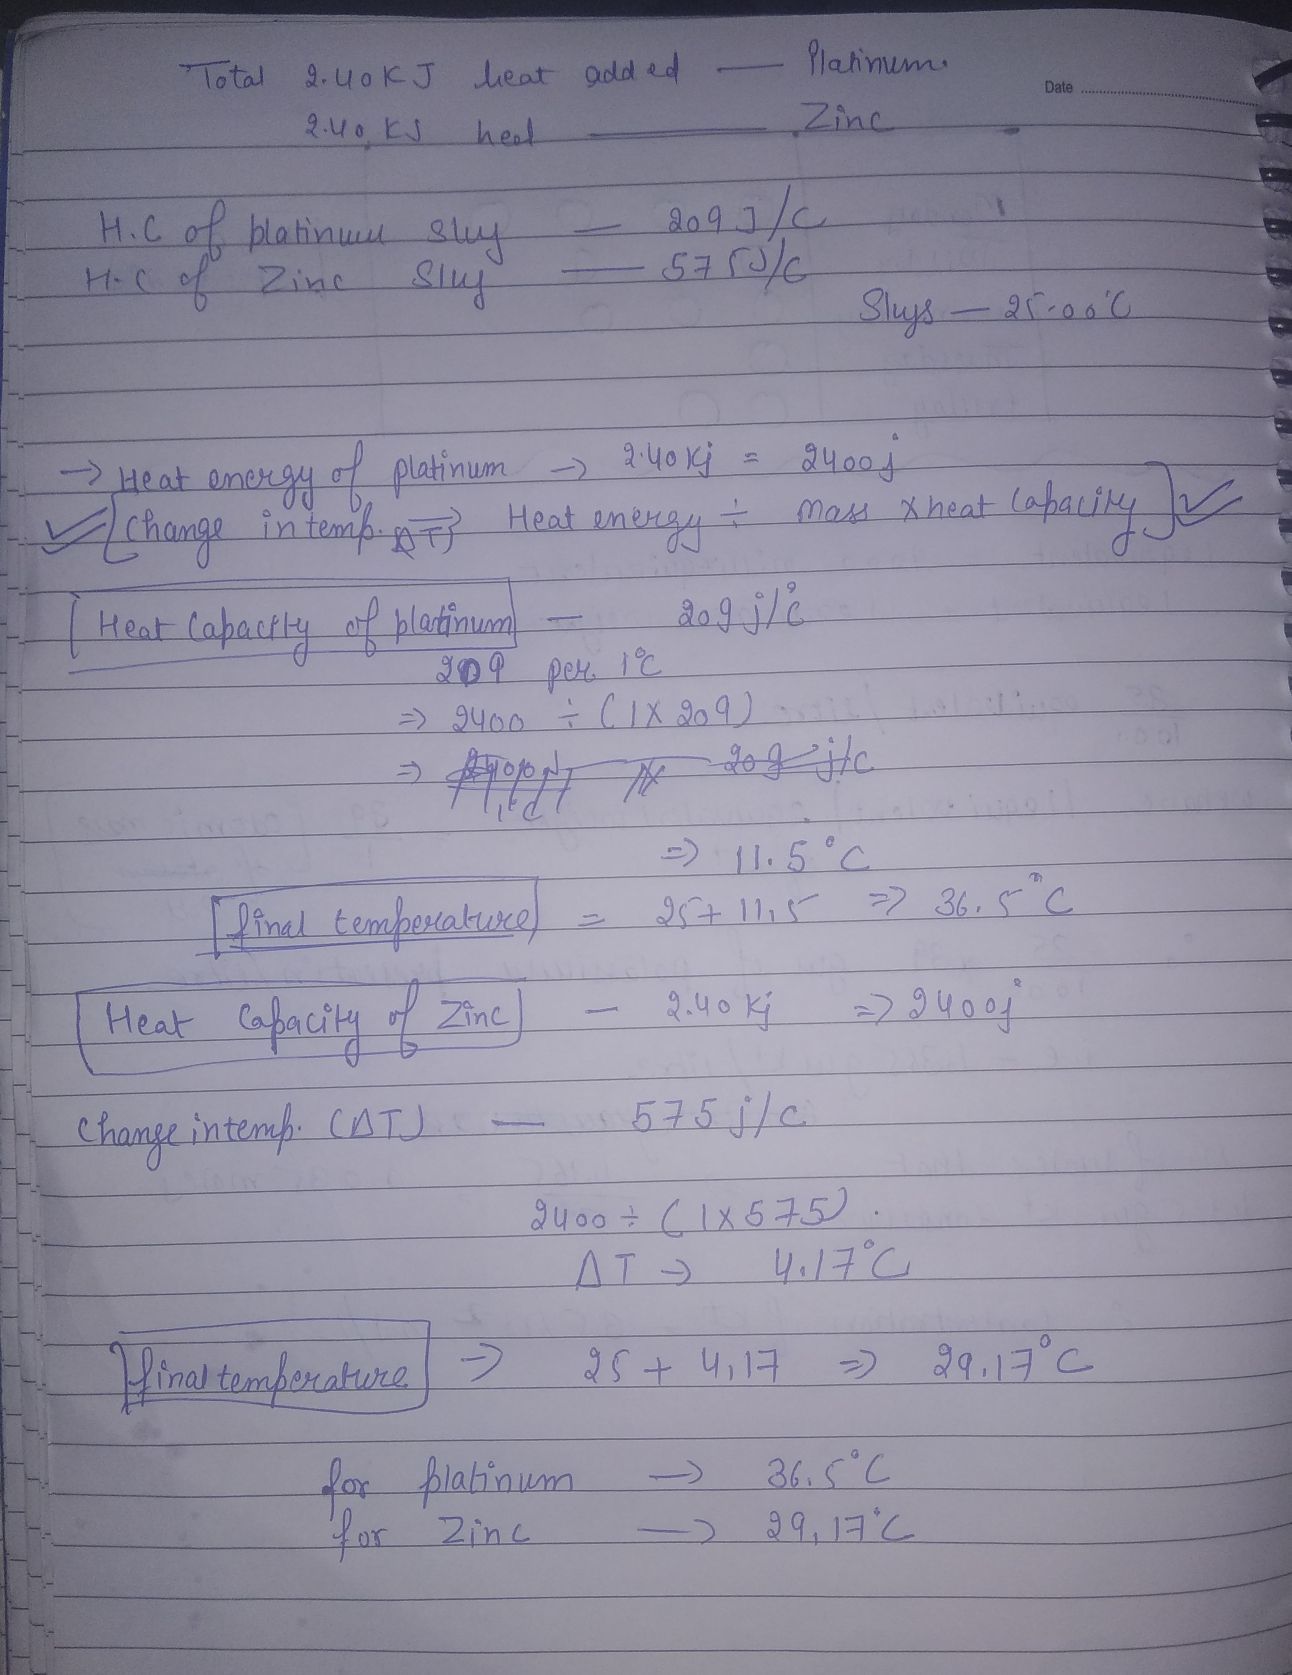 Total 2.40KJ heat added — Platinum.
Date
2.40 KJ heat — Zinc
H.C of platinum slug — 209 J/C
H.C of Zinc Slug — 575J/C
Slugs — 25.00°C
→ Heat energy of platinum → 2.40Kj = 2400j
[Change in temp. ΔT} Heat energy ÷ mass x heat Capacity]
[Heat Capacity of platinum] — 209 j/°c
209 per 1°C
⇒ 2400 ÷ (1X209)
⇒ 209 j/c
⇒ 11.5°C
[final temperature] = 25+11.5 ⇒ 36.5°C
[Heat Capacity of Zinc] — 2.40 Kj ⇒ 2400j
Change in temp. (ΔT) — 575 j/c
2400 ÷ (1X575).
ΔT → 4.17°C
[final temperature] → 25 + 4.17 ⇒ 29.17°C
for platinum → 36.5°C
for Zinc → 29.17°C